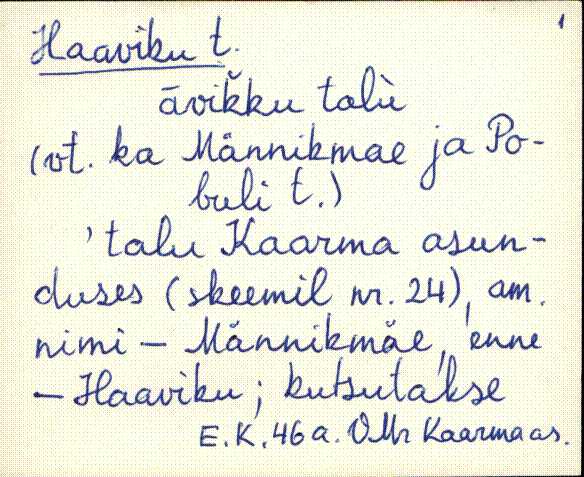 1
Haaviku t.
āvik̆ku talù
(vt. ka Männikmäe ja Po-
buli t.)
'talu Kaarma asun-
duses (skeemil nr. 24), am.
nimi – Männikmäe, enne
– Haaviku; kutsutakse
E.K. 46 a. VMr Kaarma as.